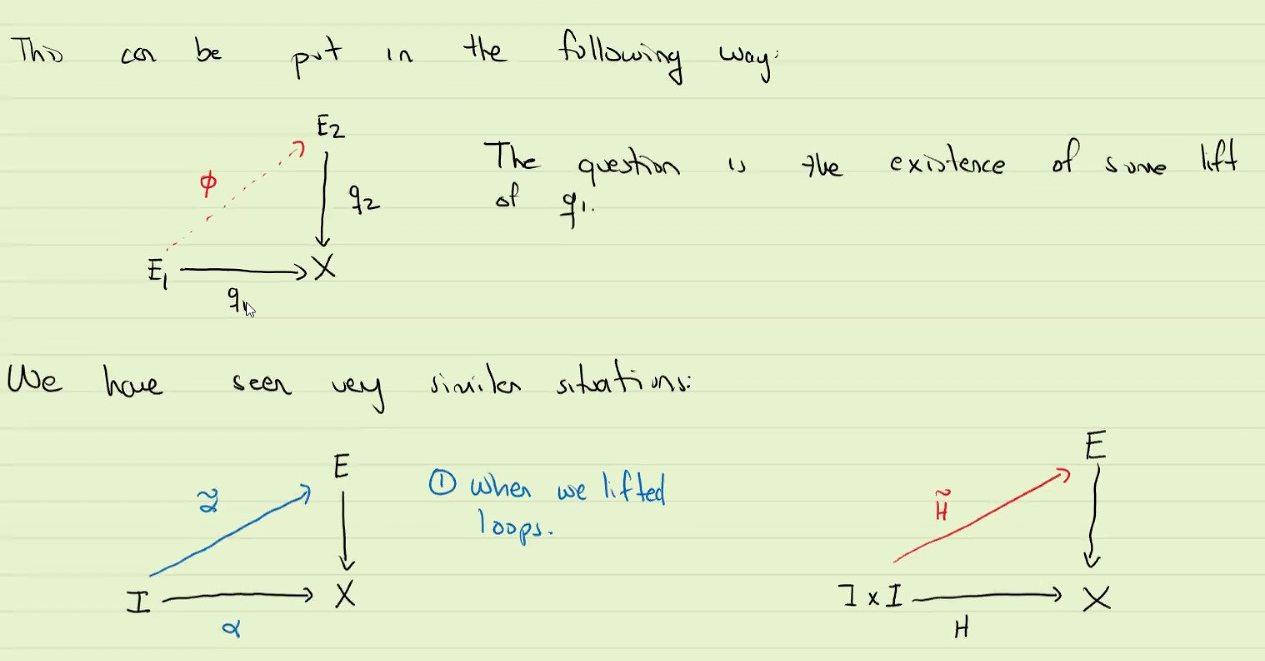 This can be put in the following way:
E₂
ϕ
q₂
The question is the existence of some lift
of q₁.
E₁
X
q₁
We have seen very similar situations:
E
E
α̃
① when we lifted
loops.
H̃
I
X
I x I
X
α
H